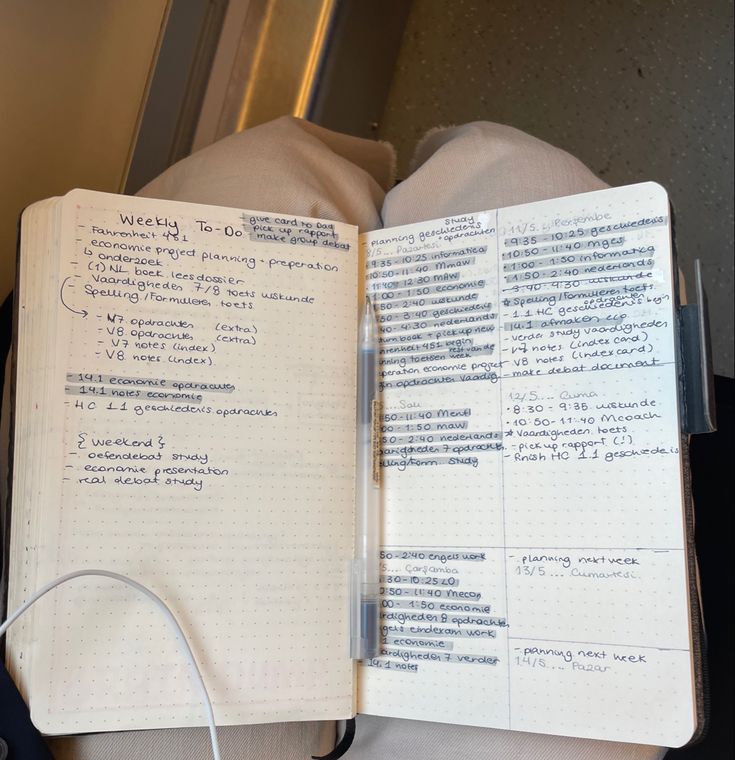 Weekly To-Do
- give card to Dad
pick up rapport
make group debat
- Fahrenheit 451
- economie project planning + preperation
↳ onderzoek
- (1) NL boek leesdossier
- Vaardigheden 7/8 toets wiskunde
- Spelling/Formuleren toets
- V7 opdrachten (extra)
- V8 opdrachten (extra)
- V7 notes (index)
- V8 notes (index)
- 14.1 economie opdrachten
- 14.1 notes economie
- HC 1.1 geschiedenis opdrachten
{ Weekend }
- oefendebat study
- economie presentation
- real debat study
study
- planning geschiedenis
+ opdrachten
8/5... Pazartesi
9:35 - 10:25 informatica
10:50 - 11:40 Maw
11:40 - 12:30 MAW
1:00 - 1:50 economie
50 - 2:40 wiskunde
50 - 3:40 geschiedenis
40 - 4:30 nederlands
+ pick up new
enheit 451 begin
rest van de
nning toetsen week
peration economie project
opdrachten vaardig
... Salı
50 - 11:40 Mentl
00 - 1:50 maw
50 - 2:40 nederlands
aardigheden 7 opdracht
lling/form. study
50 - 2:40 engels work
/5... Çarşamba
:30 - 10:25 LO
0:50 - 11:40 Mecon
:00 - 1:50 economie
rdigheden 8 opdrachten
gels eindexam work
1 economie
aardigheden 7 verder
14.1 notes
11/5... Perşembe
9:35 - 10:25 geschiedenis
10:50 - 11:40 mges
1:00 - 1:50 informatica
1:50 - 2:40 nederlands
- 3:40 - 4:30 wiskunde
* Spelling/Formuleren toets
opdrachten
- 1.1 HC geschiedenis begin
14.1 afmaken eco
- verder study vaardigheden
- V7 notes (index card)
- V8 notes (index card)
- make debat document
12/5... Cuma
• 8:30 - 9:35 wiskunde
• 10:50 - 11:40 Mcoach
* Vaardigheden toets
- pick up rapport (!)
- finish HC 1.1 geschiedenis
- planning next week
13/5.... Cumartesi
- planning next week
14/5.... Pazar